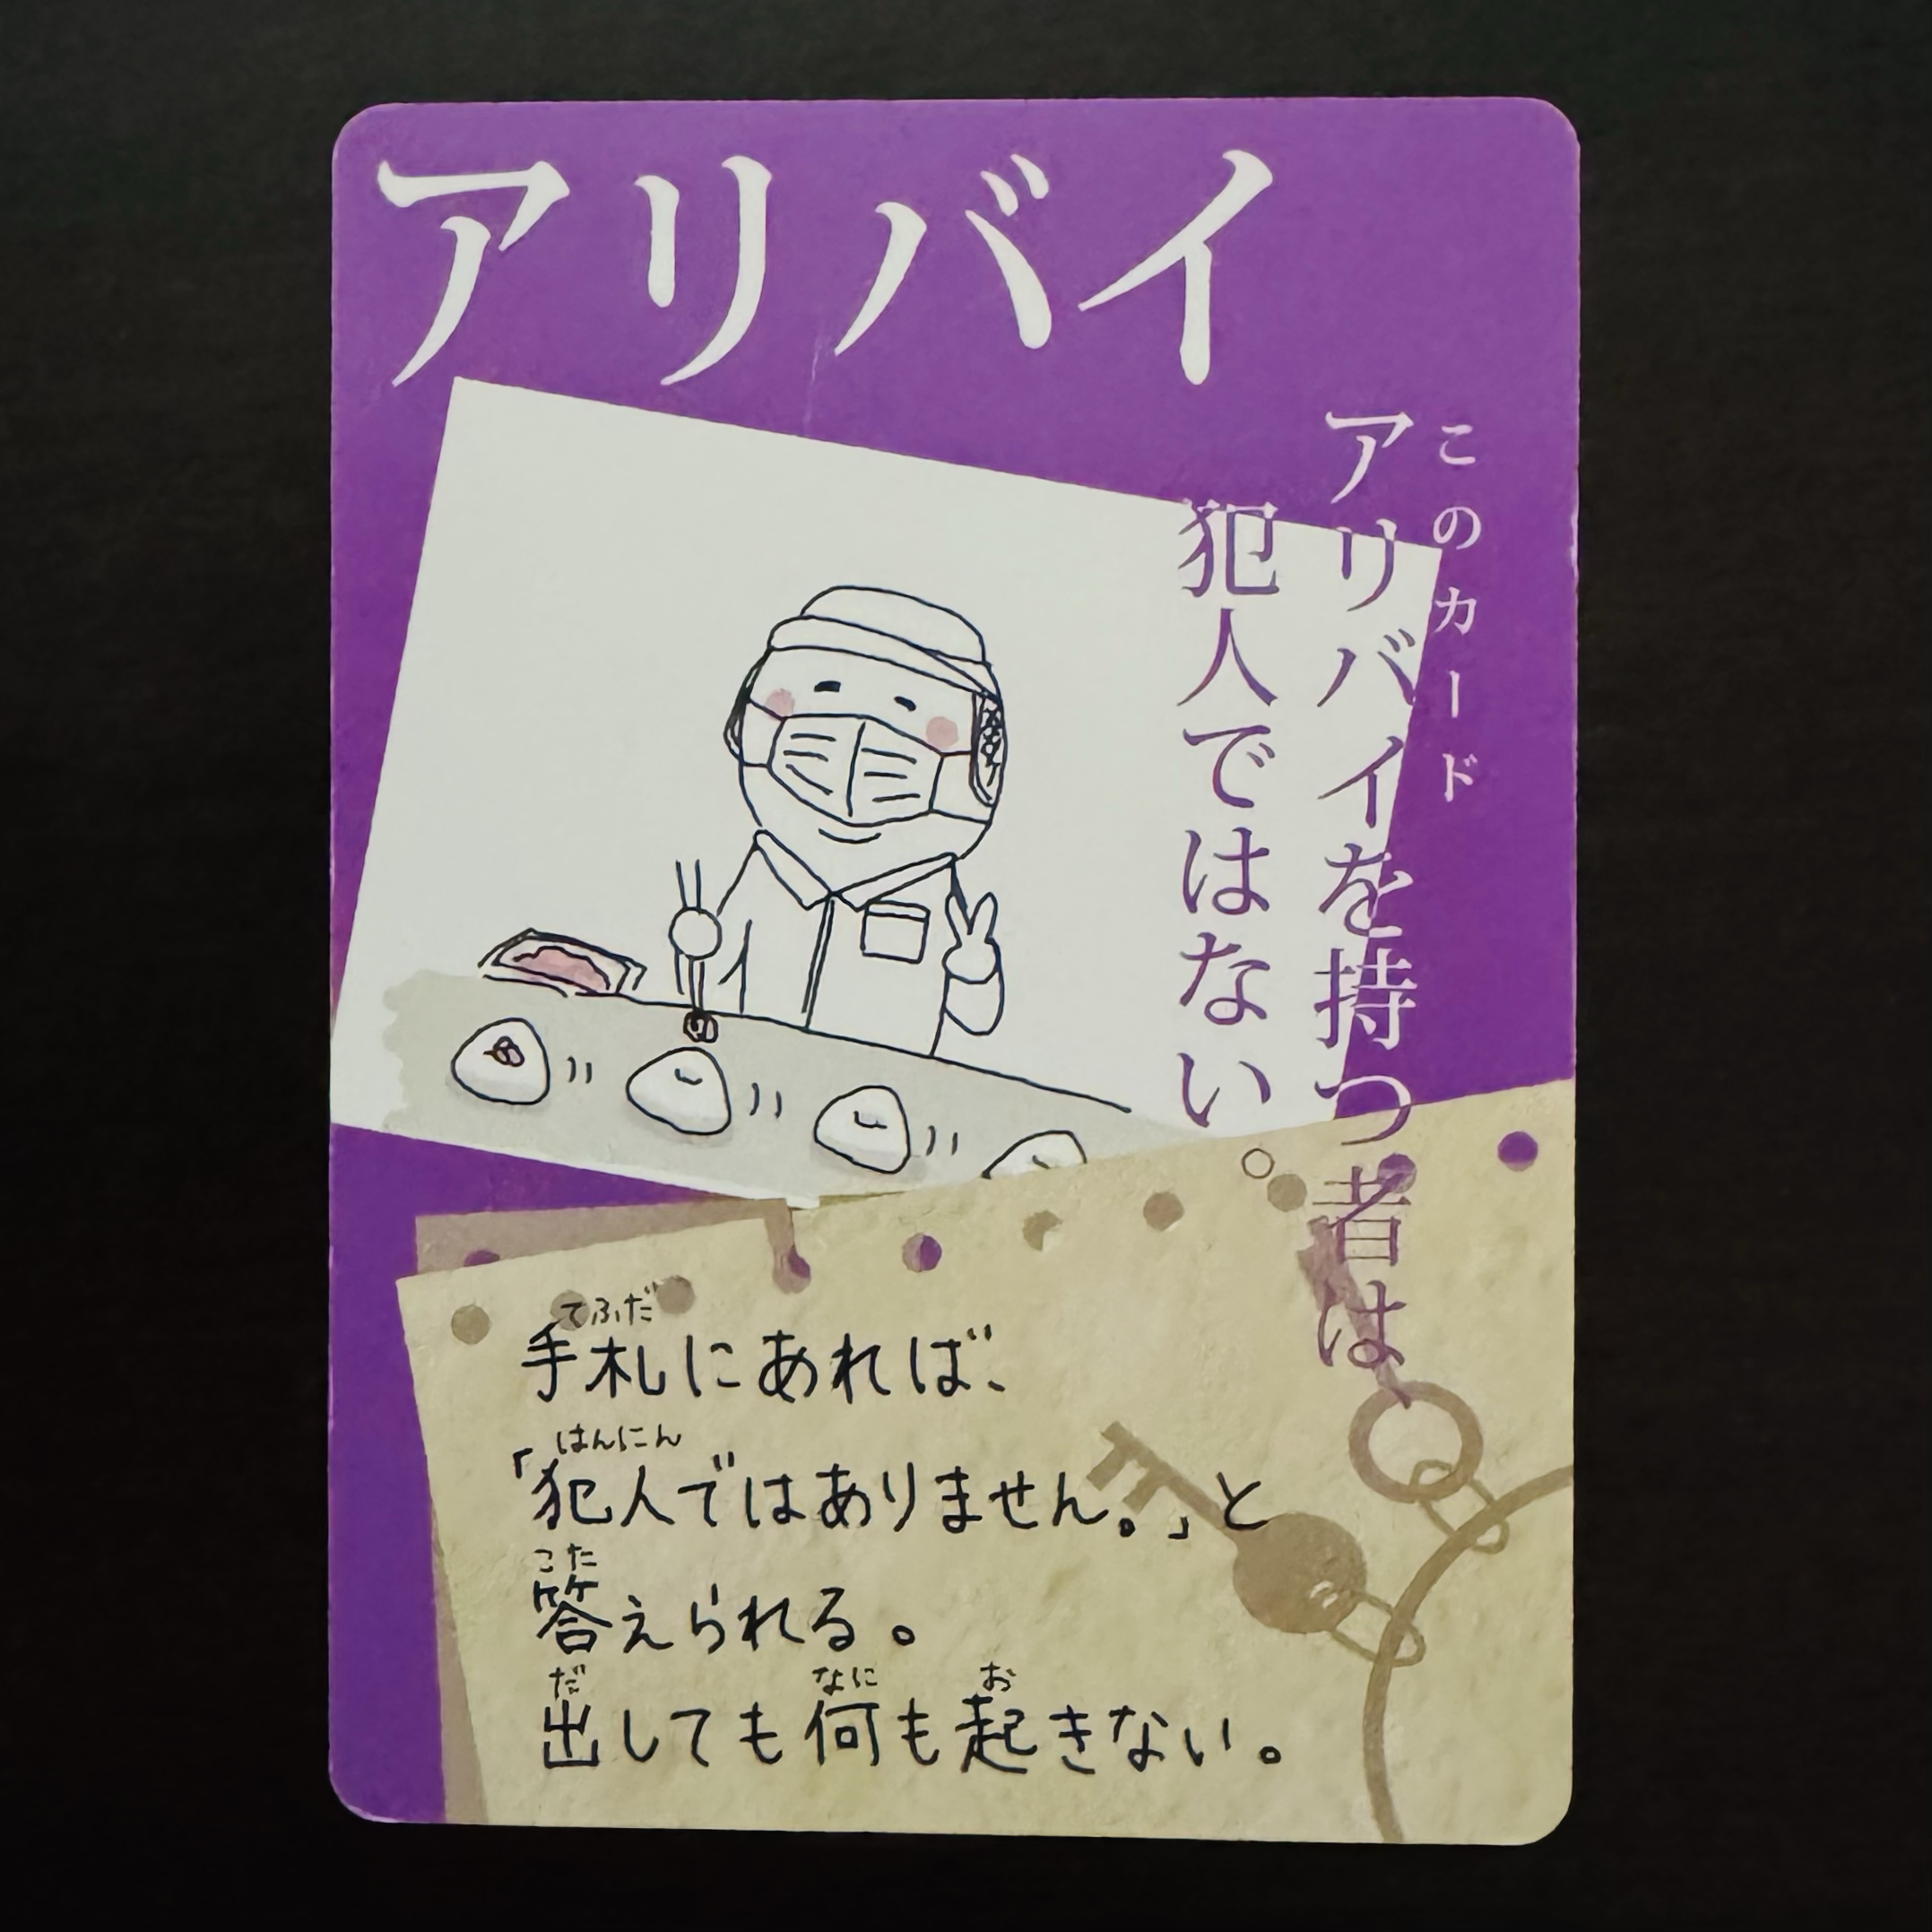 アリバイ
このカード
アリバイを持つ者は
犯人ではない。
てふだ
手札にあれば、
はんにん
「犯人ではありません。」と
こた
答えられる。
だ なに お
出しても何も起きない。